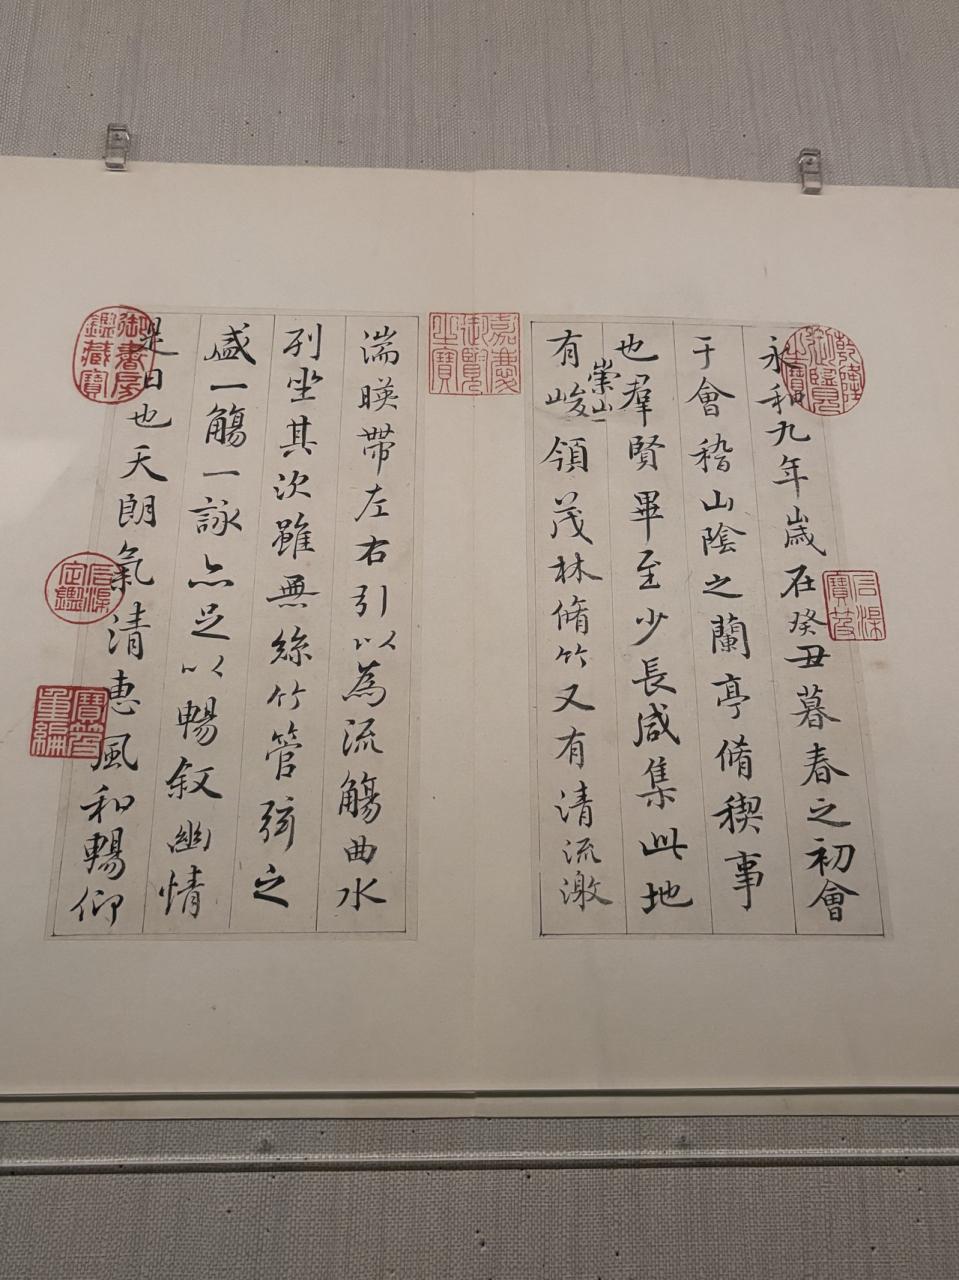 永和九年歲在癸丑暮春之初會
于會稽山陰之蘭亭脩稧事
也羣賢畢至少長咸集此地
有崇山峻領茂林脩竹又有清流激
湍暎帶左右引以為流觴曲水
列坐其次雖無絲竹管弦之
盛一觴一詠亦足以暢叙幽情
是日也天朗氣清惠風和暢仰
乾隆御覽之寶
石渠寶笈
嘉慶御覽之寶
御書房鑑藏寶
石渠定鑑
寶笈重編